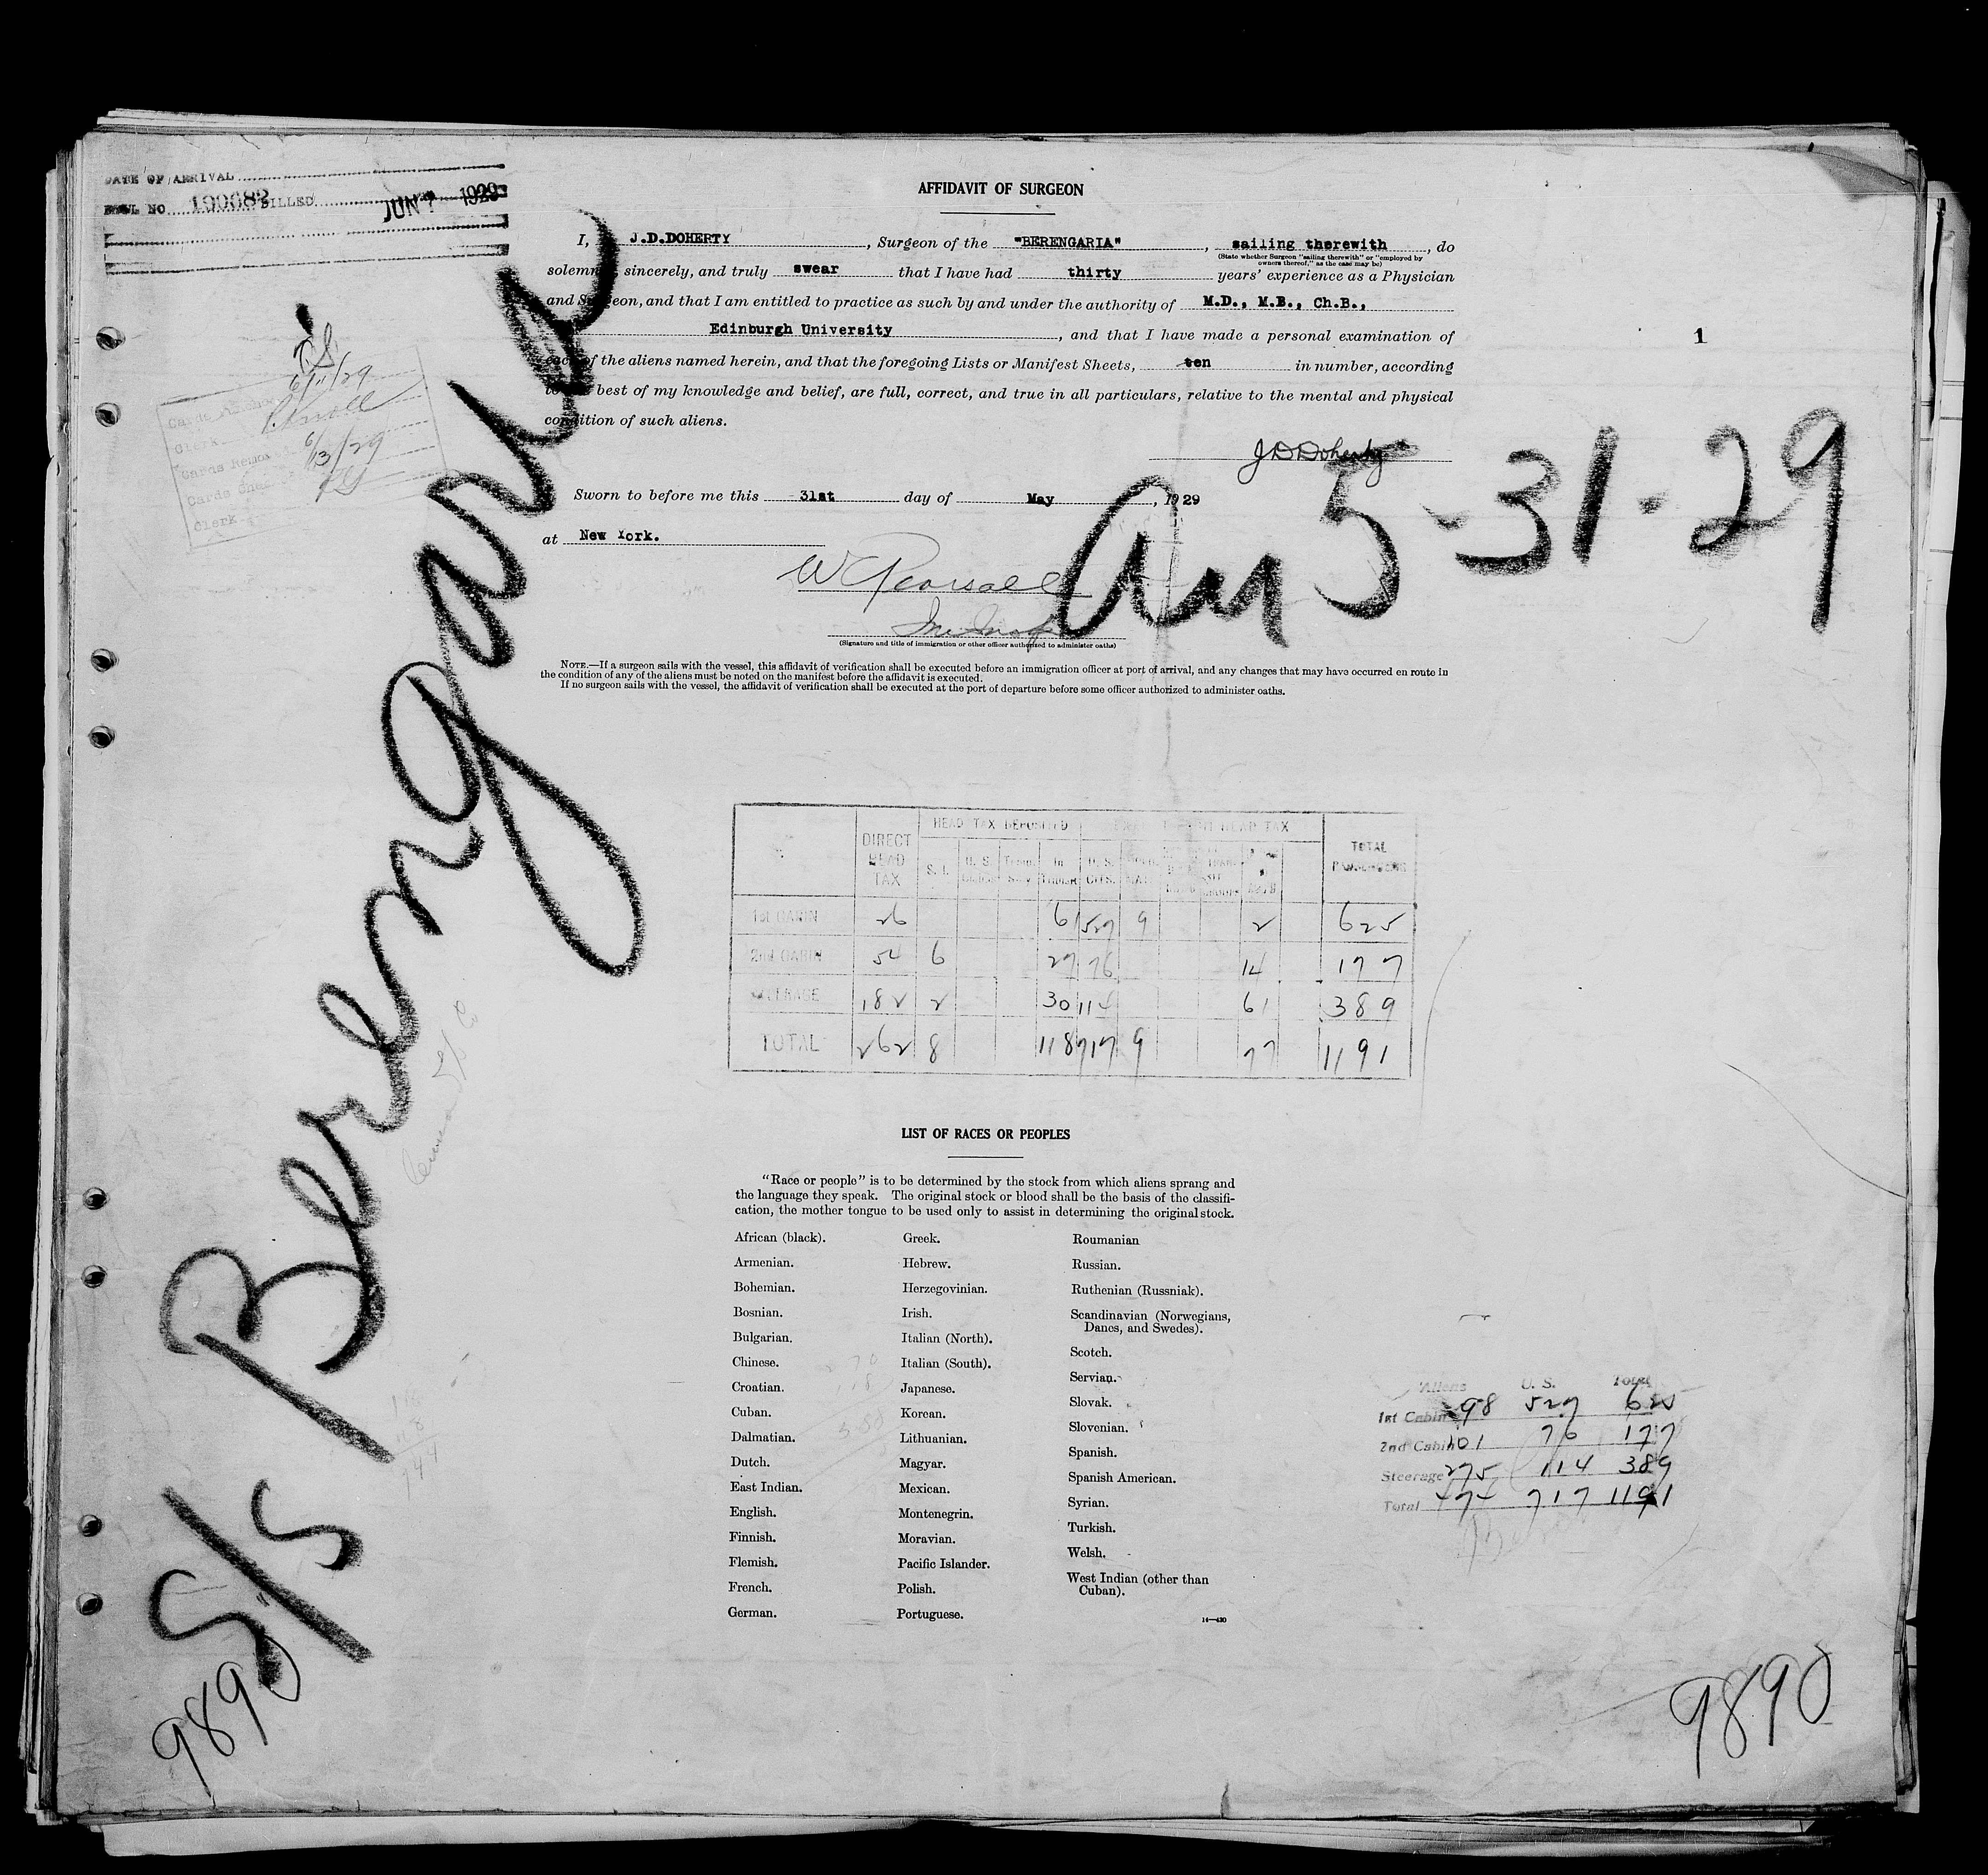 DATE OF ARRIVAL
NO 190682 BILLED JUN 7 1929
AFFIDAVIT OF SURGEON
I, J.D.DOHERTY, Surgeon of the "BERENGARIA", sailing therewith, do
(State whether Surgeon "sailing therewith" or "employed by
owners thereof," as the case may be)
solemnly, sincerely, and truly swear that I have had thirty years' experience as a Physician
and Surgeon, and that I am entitled to practice as such by and under the authority of M.D., M.B., Ch.B.,
Edinburgh University, and that I have made a personal examination of
each of the aliens named herein, and that the foregoing Lists or Manifest Sheets, ten in number, according
to the best of my knowledge and belief, are full, correct, and true in all particulars, relative to the mental and physical
condition of such aliens.
1
6/11/29
Clerk
6/13/29
Clerk
JDDoherty
Sworn to before me this 31st day of May, 1929
at New York.
W Pearsall
(Signature and title of immigration or other officer authorized to administer oaths)
Arr 5-31-29
NOTE.—If a surgeon sails with the vessel, this affidavit of verification shall be executed before an immigration officer at port of arrival, and any changes that may have occurred en route in
the condition of any of the aliens must be noted on the manifest before the affidavit is executed.
If no surgeon sails with the vessel, the affidavit of verification shall be executed at the port of departure before some officer authorized to administer oaths.
S/S Berengaria
DIRECT HEAD TAX HEAD TAX DEPOSITED HEAD TAX TOTAL PASSENGERS
S. I. U. S. In U. S. CITS.
1st CABIN 26 61 527 9 2 625
2nd CABIN 54 6 27 76 14 177
STEERAGE 182 2 30 114 61 389
TOTAL 262 8 118 717 9 77 1191
LIST OF RACES OR PEOPLES
"Race or people" is to be determined by the stock from which aliens sprang and
the language they speak. The original stock or blood shall be the basis of the classifi-
cation, the mother tongue to be used only to assist in determining the original stock.
African (black).
Armenian.
Bohemian.
Bosnian.
Bulgarian.
Chinese.
Croatian.
Cuban.
Dalmatian.
Dutch.
East Indian.
English.
Finnish.
Flemish.
French.
German.
Greek.
Hebrew.
Herzegovinian.
Irish.
Italian (North).
Italian (South).
Japanese.
Korean.
Lithuanian.
Magyar.
Mexican.
Montenegrin.
Moravian.
Pacific Islander.
Polish.
Portuguese.
Roumanian
Russian.
Ruthenian (Russniak).
Scandinavian (Norwegians,
Danes, and Swedes).
Scotch.
Servian.
Slovak.
Slovenian.
Spanish.
Spanish American.
Syrian.
Turkish.
Welsh.
West Indian (other than
Cuban).
14—430
Aliens U. S. Total
1st Cabin 98 527 625
2nd Cabin 101 76 177
Steerage 275 114 389
Total 474 717 1191
9890
9890